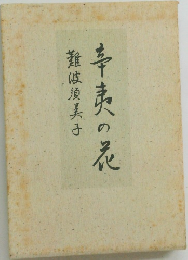 辛夷の花
難波須美子